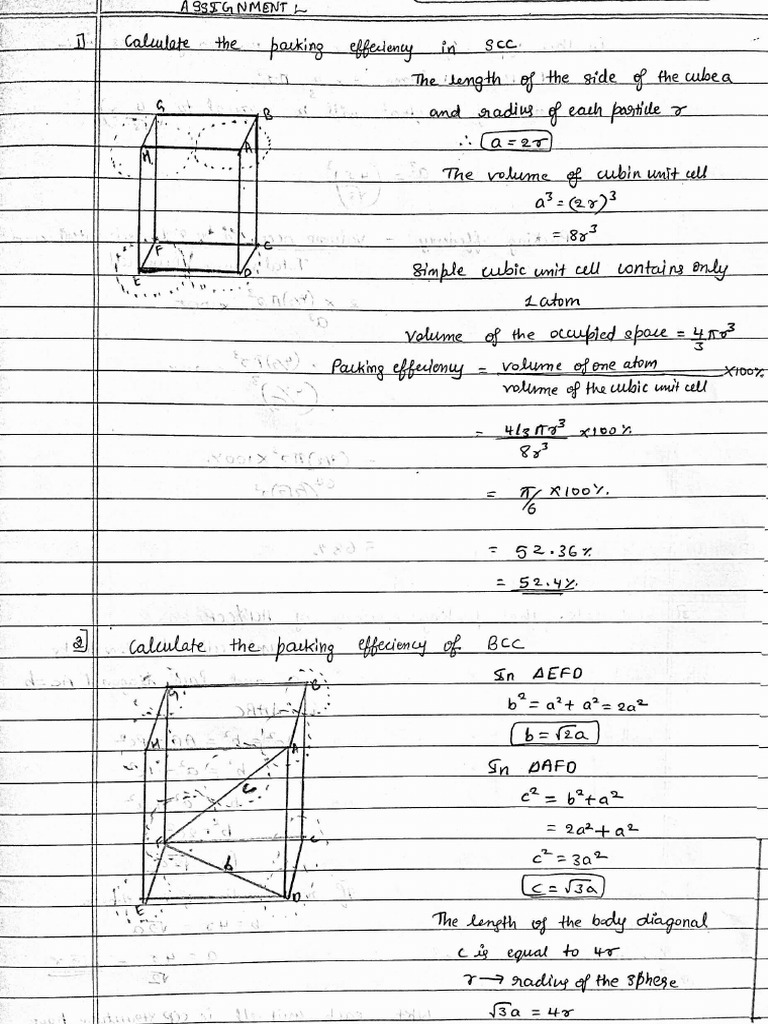 ASSIGNMENT :-
1] Calculate the packing effeciency in SCC
The length of the side of the cube a
and radius of each particle r
∴ a = 2r
The volume of cubin unit cell
a³ = (2r)³
= 8r³
Simple cubic unit cell contains only
1 atom
Volume of the occupied space = 4/3 πr³
Packing effeciency = volume of one atom / volume of the cubic unit cell ×100%
= 4/3 πr³ / 8r³ ×100%
= π/6 ×100%.
= 52.36%
= 52.4%
G B
H A
F C
E D
2] Calculate the packing effeciency of BCC
In ΔEFD
b² = a² + a² = 2a²
b = √2a
In ΔAFD
c² = b² + a²
= 2a² + a²
c² = 3a²
c = √3a
The length of the body diagonal
c is equal to 4r
r → radius of the sphere
√3a = 4r
G B
H A
c
F C
b
E D